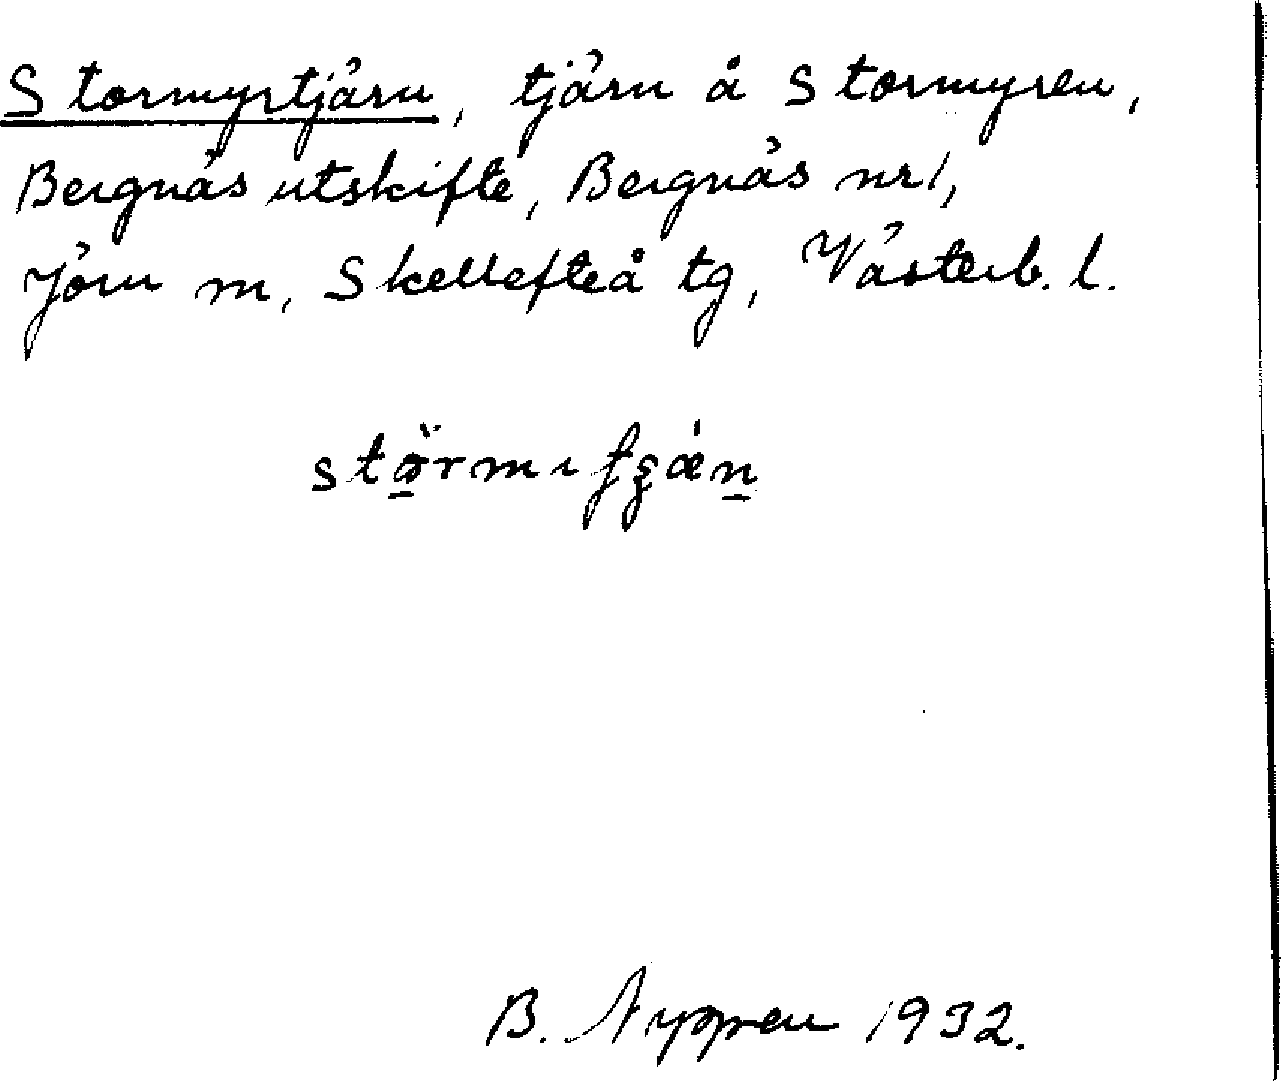 Stormyrtjärn, tjärn å Stormyren,
Bergnäs utskifte, Bergnäs nr 1,
Jörn sn, Skellefteå tg, Västerb. l.
B. Nygren 1932.